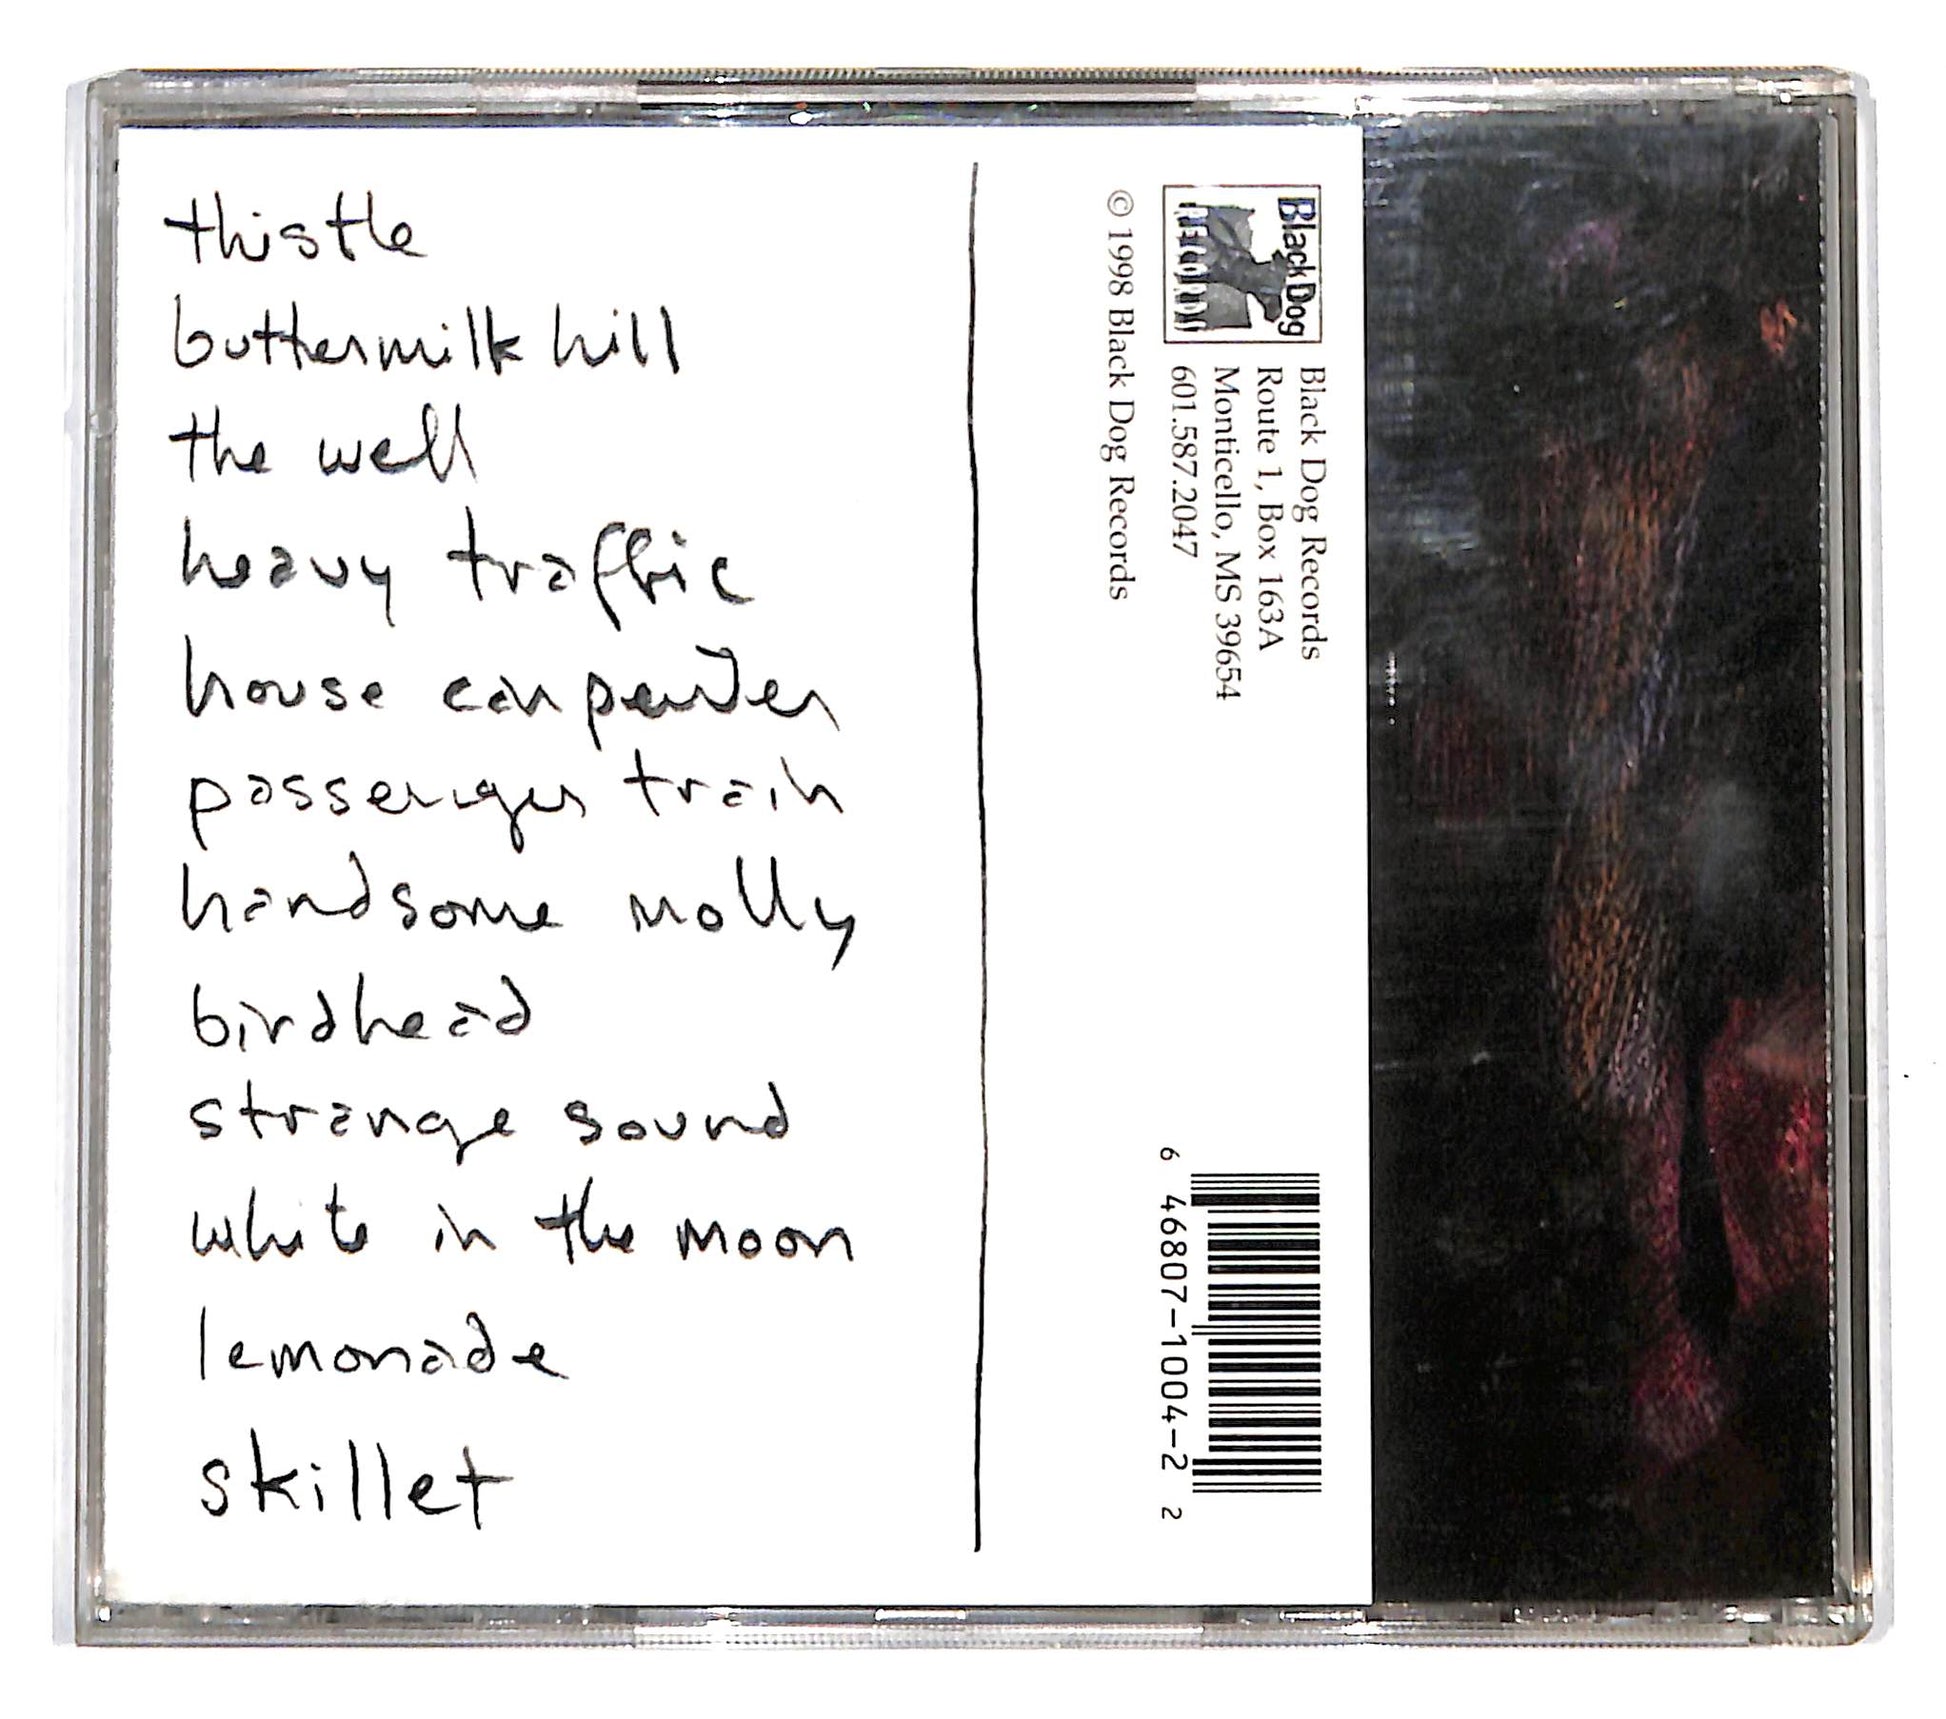 thistle
buttermilk hill
the well
heavy traffic
house carpenter
passenger train
handsome molly
birdhead
strange sound
white in the moon
lemonade
skillet
Black Dog
RECORDS
Black Dog Records
Route 1, Box 163A
Monticello, MS 39654
601.587.2047
© 1998 Black Dog Records
6 46807-1004-2 2